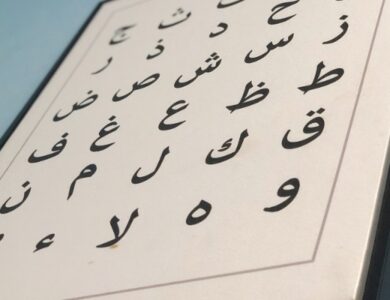 ث ج
خ د ذ ر
ز س ش ص ض
ط ظ ع غ ف
ق ك ل م ن
و ه لا ء